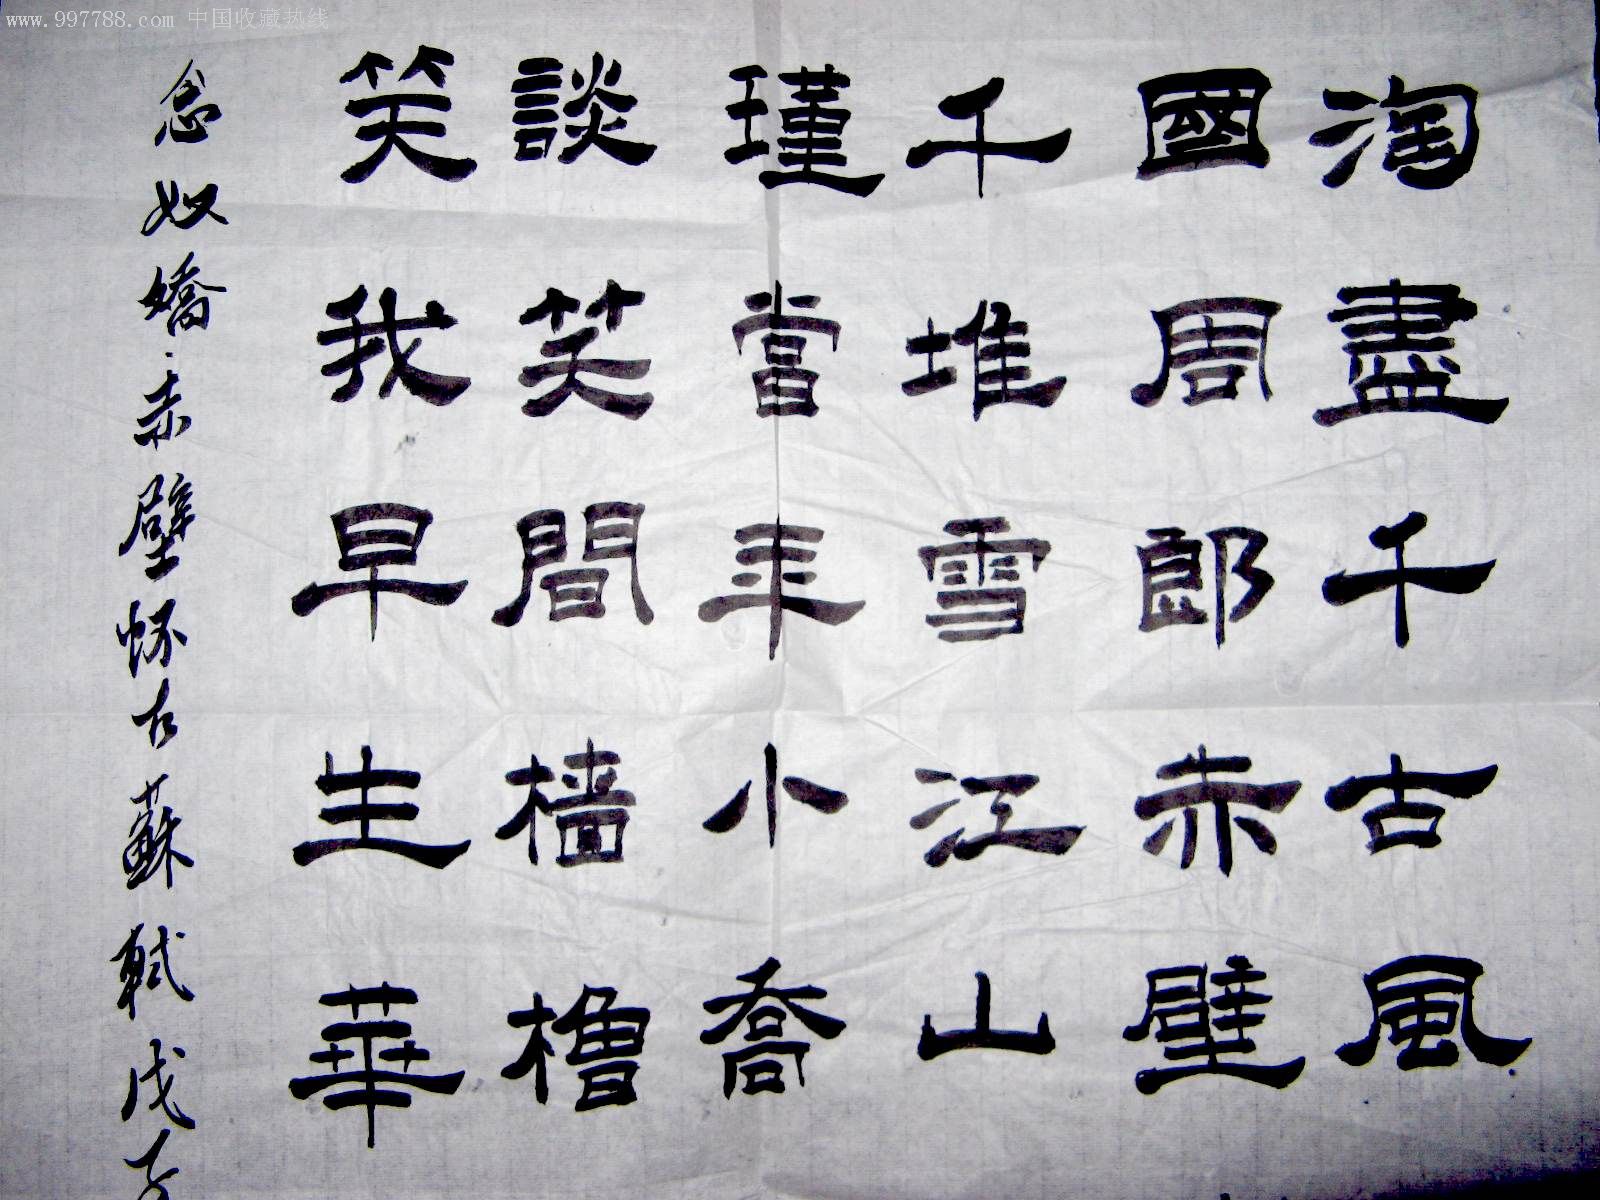 www.997788.com 中国收藏热线
淘盡千古風
國周郎赤壁
千堆雪江山
瑾當年小喬
談笑間檣櫓
笑我早生華
念奴嬌赤壁懷古蘇軾戊子